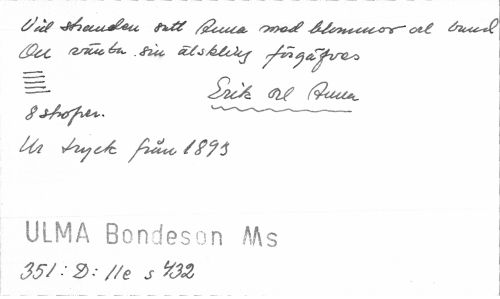 Vid stranden satt Anna med blommor och band
Och väntar sin älskling förgäfves
Erik och Anna
8 strofer.
Ur tryck från 1893
ULMA Bondeson Ms
351:D:11e s 432